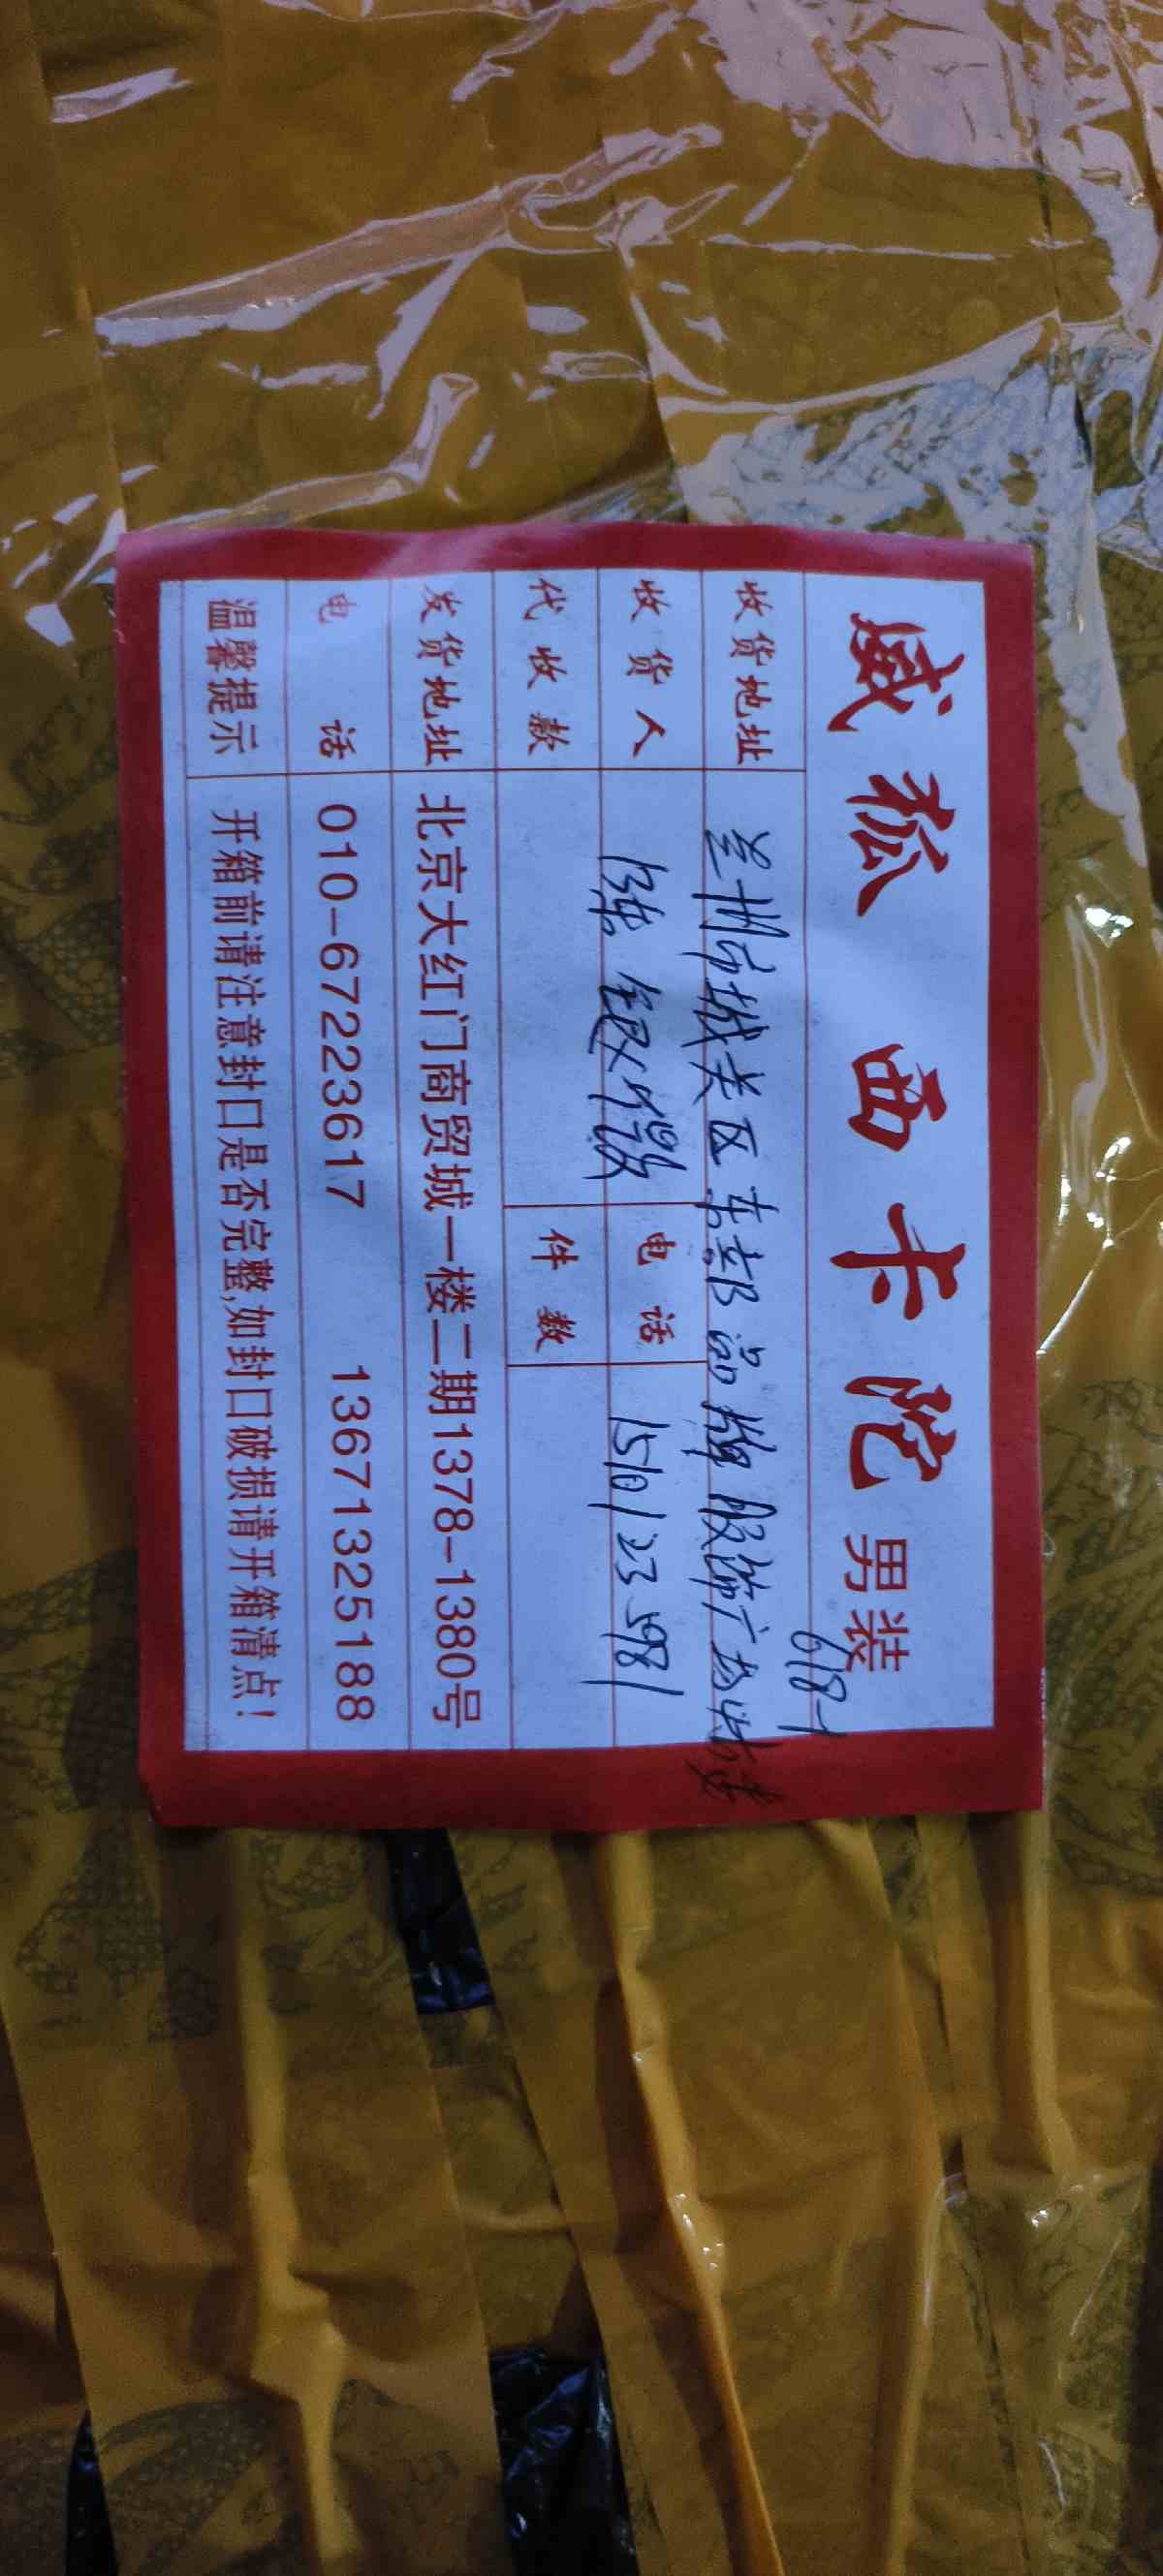 威狐 西卡陀 男装
618-1
收货地址 兰州市城关区东部品牌服饰广场
收货人 张银 电话 15101235981
代收款 件数
发货地址 北京大红门商贸城一楼二期1378-1380号
电话 010-67223617 13671325188
温馨提示 开箱前请注意封口是否完整,如封口破损请开箱清点!